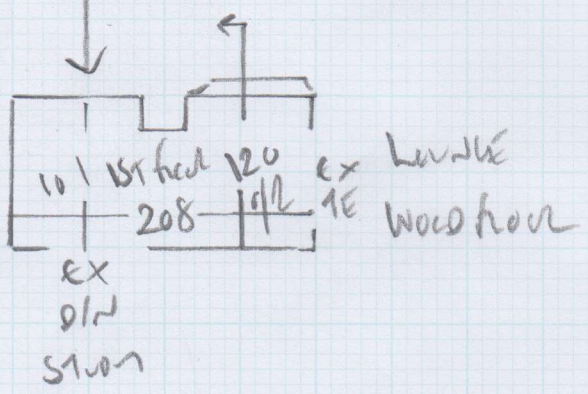 101 1ST floor 120 EX LOUNGE
208 TE WOOD floor
EX
DIN
STUDY